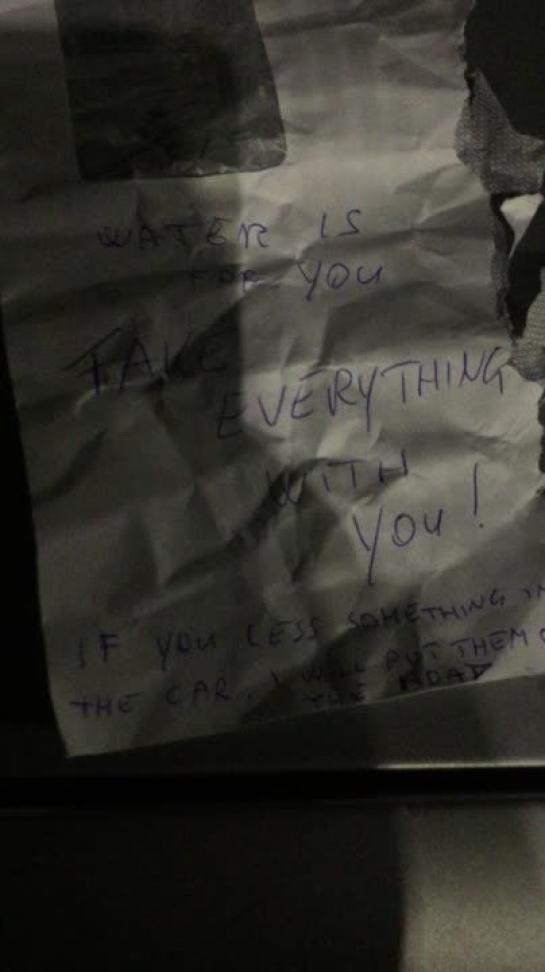 WATER IS
FOR YOU
TAKE
EVERYTHING
WITH
YOU!
IF YOU LESS SOMETHING IN
THE CAR. I WILL PUT THEM
THE ROAD